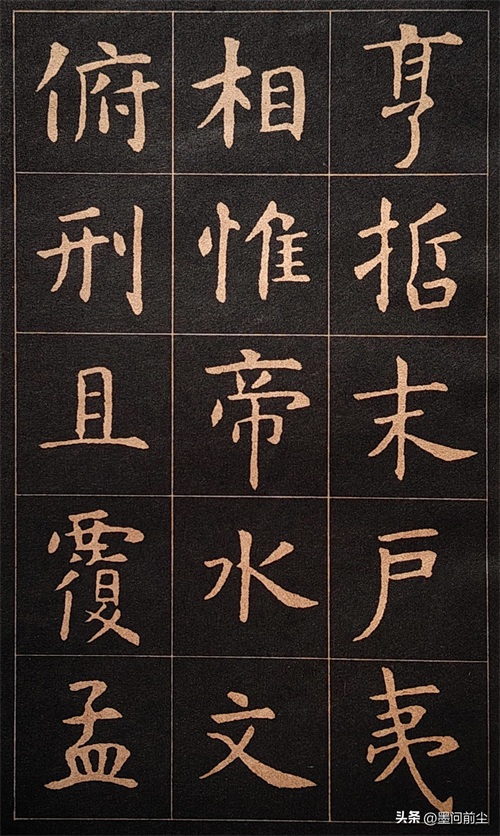 亨哲末戸夷
相惟帝水文
俯刑且覆孟
头条@墨问前尘